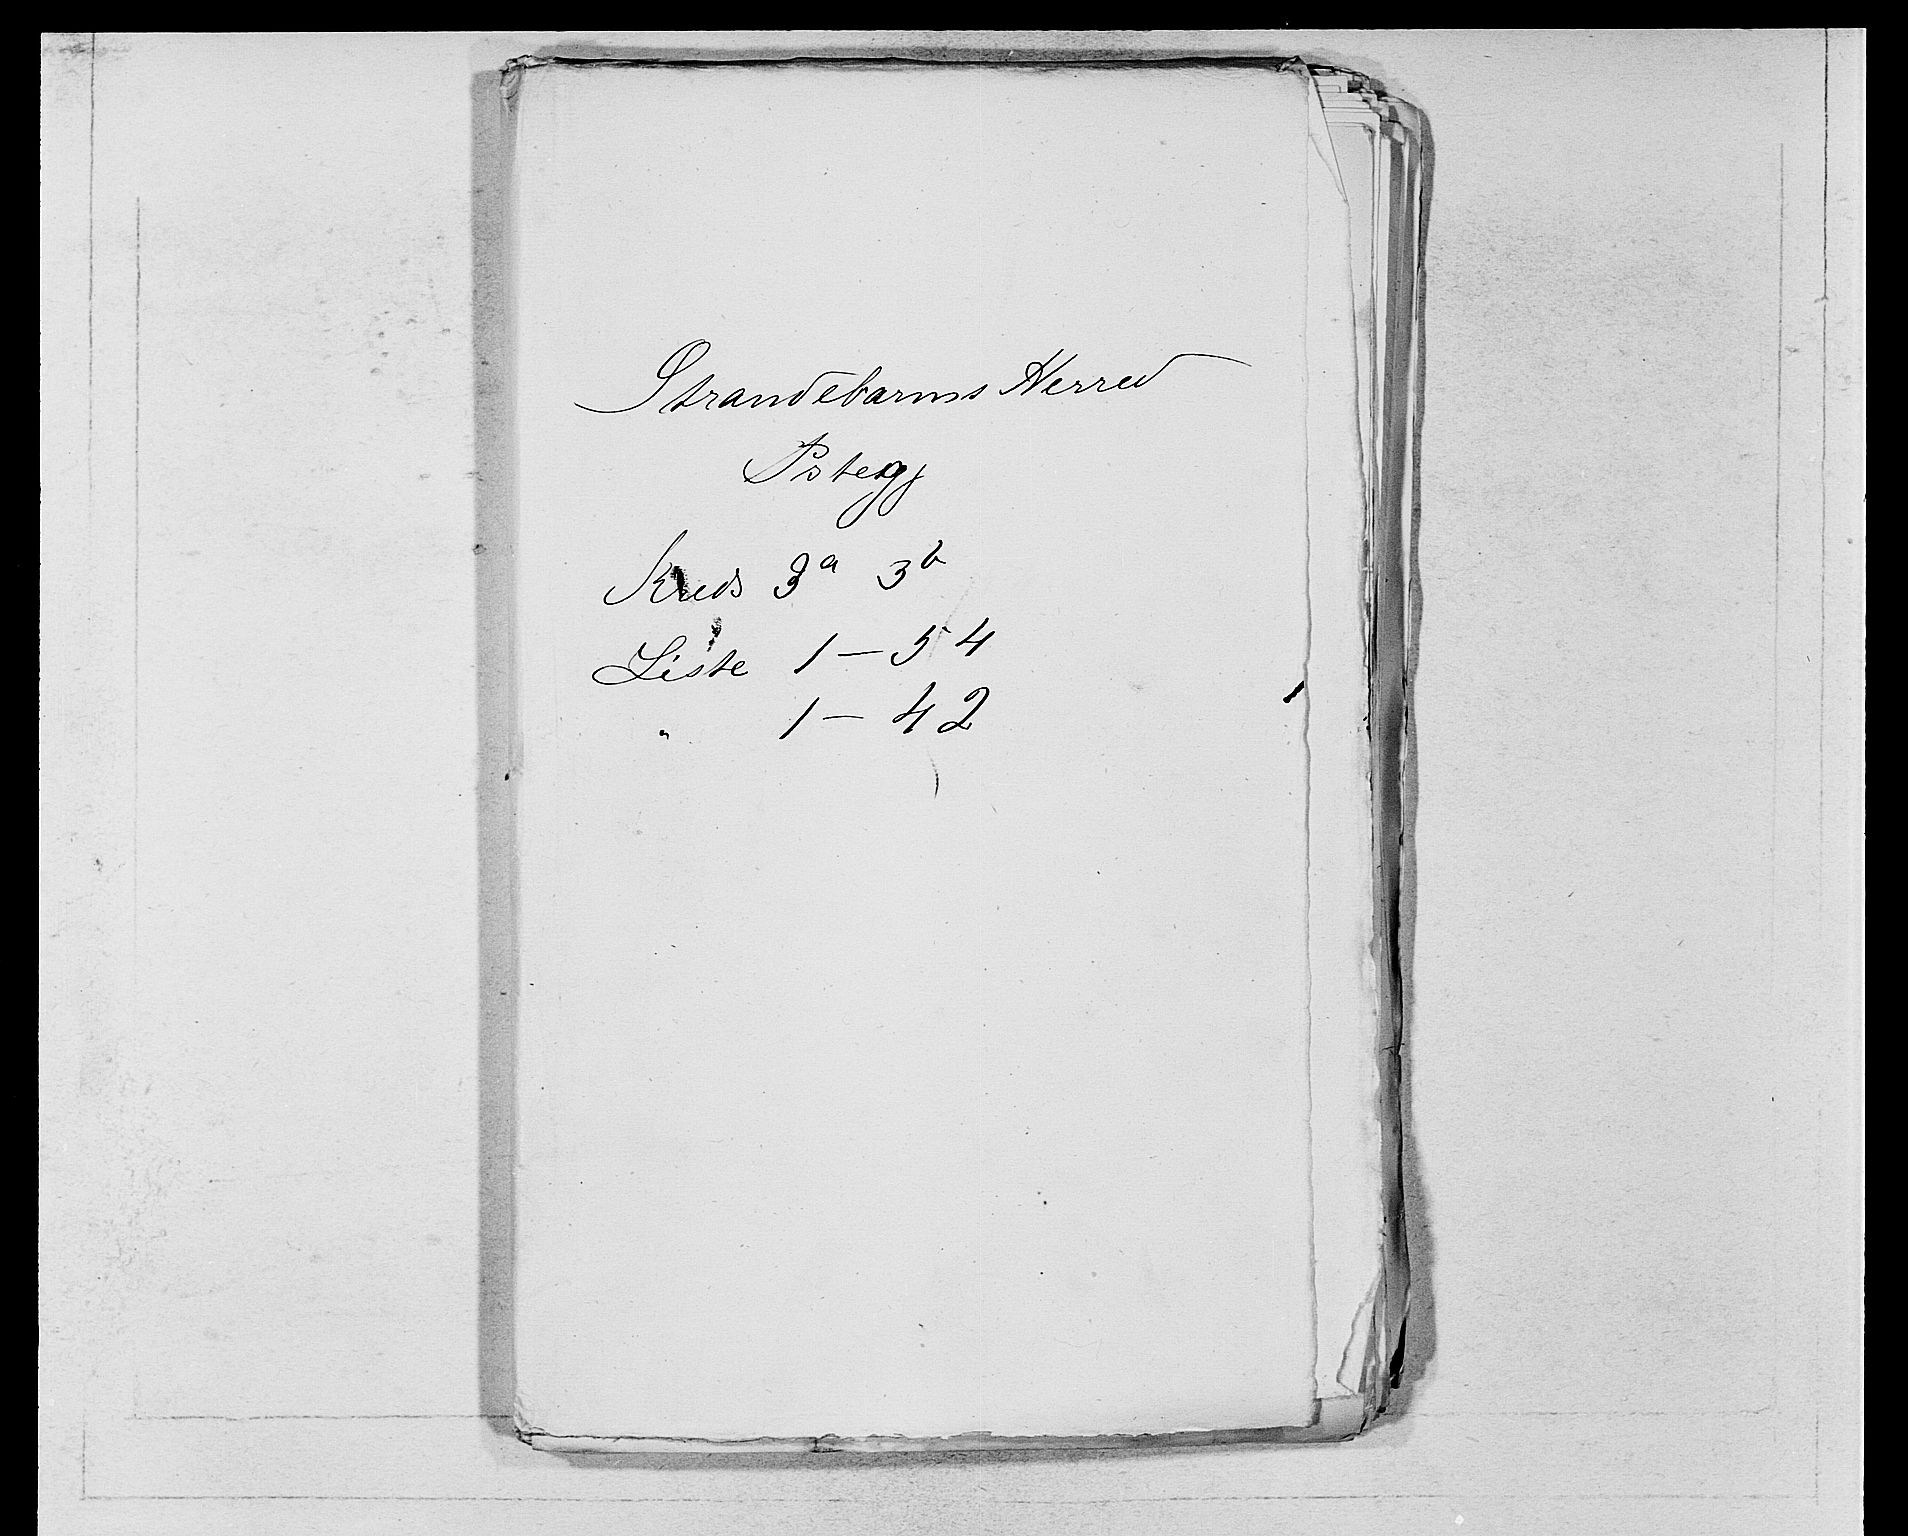 Strandebarms Herred
Pstegj
Kreds 3a 3b
Liste 1 – 54
" 1 – 42